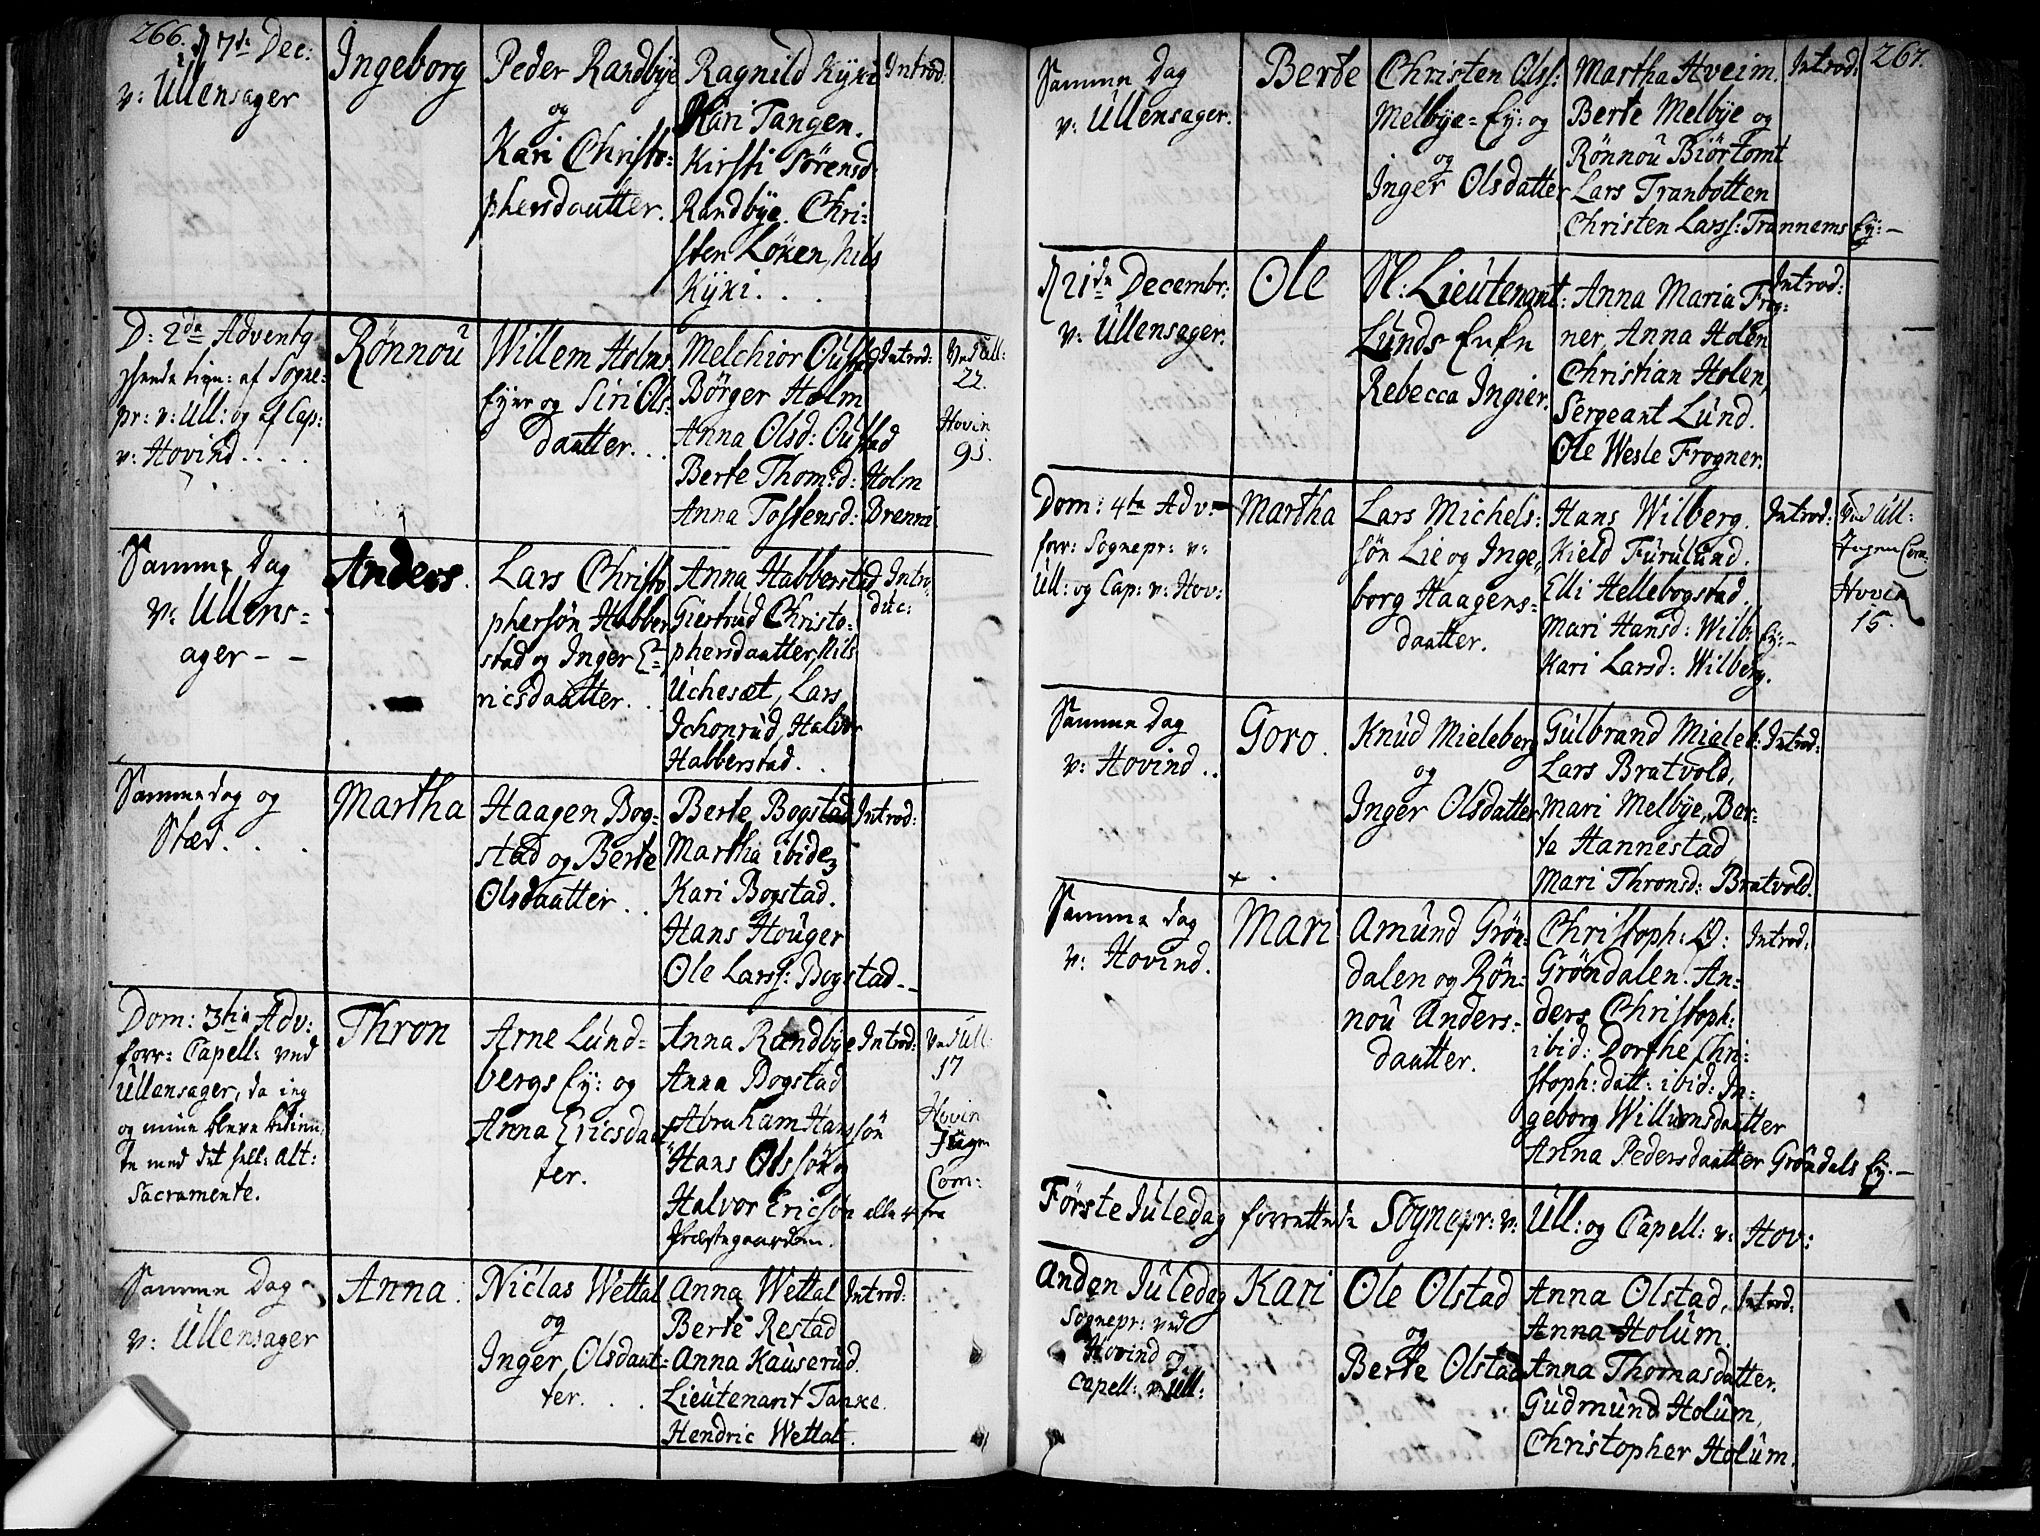 266.
d 7de Dec:
v: Ullensager
Ingeborg
Peder Randbye
og
Kari Christo-
phersdaatter.
Ragnild Kyxi
Kari Tangen.
Kirsti Sörensd:
Randbye. Chri-
sten Löken, Nils
Kyxi. . .
Introd:
D: 2da Adventq
Sogne-
pr: v: Ull: og af Cap:
v: Hovind. . . .
Rönnou
Willem Holms
Eyer og Siri Ols-
daatter. . .
Melchior Oustad
Börger Holm
Anna Olsd: Oustad
Berte Thom:d: Holm
Anna Tostensd: Brenni
Introd:
Ved Ull:
22.
Hovin
95.
Samme Dag
v: Ullens-
ager - -
Anders.
Lars Christo
phersön Habber
stad og Inger E-
ricsdaatter. .
Anna Habberstad
Giertrud Christo-
phersdaatter, Nils
Uchesæt, Lars
Ichonrud, Halvor
Habberstad. .
Intro-
duc:
Samme dag og
Stæd. . .
Martha
Haagen Bog-
stad og Berte
Olsdaatter. .
Berte Bogstad
Martha ibidem
Kari Bogstad.
Hans Houger
Ole Larss: Bogstad--
Introd:
Dom: 3tia Adv:
forr: Capell: ved
Ullensager, da ing
og mine bleve betien-
te med det hell: Alt:
Sacramente.
Thron
Arne Lund-
bergs Ey: og
Anna Ericsdaat
ter.
Anna Randbye
Anna Bogstad
Abraham Hanssön
Hans Olssön og
Halvor Ericsön alle 4 fra
Præstegaarden.
Introd:
Ved Ull:
57
Hovin
Ingen
Com:
Samme Dag
v: Ullensager
Anna.
Niclas Wettal
og
Inger, Olsdaat-
ter. . .
Anna Wettal
Berte Restad
Anna Kauserud.
Lieutenant Tanke.
Hendric Wettal.
Introd:
267.
Samme Dag
v: Ullensager.
Berte
Christen Olss:
Melbye- Ey: og
og
Inger Olsdatter
Martha Hveim.
Berte Melbye og
Rönnou Biörtomt
Lars Tranbotten
Christen Larss: Trannems Ey: -
Introd:
d 21de Decembr:
v: Ullensager.
Ole
Sl: Lieutenant:
Lunds Enke
Rebecca Ingier.
Anna Maria Frog-
ner, Anna Holen
Christian Holen,
Sergeant Lund.
Ole Wesle Frogner.
Introd:
Dom: 4ta Adv:
forr: Sognepr: v:
Ull: og Cap: v: Hov:
Martha
Lars Michels-
sön Lie og Inge-
borg Haagens-
daatter.
Hans Wilberg.
Kield Furulund.
Elli Hellebogstad
Mari Hansd: Wilb: Ey: -
Kari Larsd: Wilberg.
Introd:
Ved Ull:
Ingen Com:
Hovin
15.
Samme Dag
v: Hovind. .
Goro.
Knud Mieleberg
og
Inger Olsdatter
Gulbrand Mieleb:
Lars Bratvold,
Mari Melbye, Ber-
te Hannestad
Mari Thronsd: Bratvold.
Introd:
Samme Dag
v: Hovind.
Mari
Amund Grön-
dalen og Rön-
nou Anders-
daatter.
Christoph: O:
Gröndalen. An-
ders Christoph:
ibid: Dorthe Chri-
stoph: datt: ibid: In-
geborg Willumsdaatter
Anna Pedersdaatter Gröndals Ey: -
Introd:
Förste Juledag forrettede Sognepr: v: Ull: og Capell: v: Hov:
Anden Juledag
Sognepr: ved
Hovind og
Capell: v: Ull:
Kari
Ole Olstad
og
Berte Olstad
Anna Olstad,
Anna Holum.
Anna Thomasdatter.
Gudmund Holum,
Christopher Holum.
Introd: